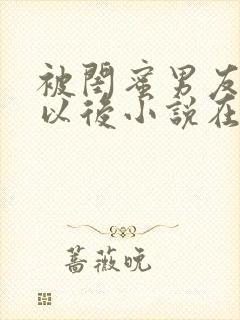 被閨蜜男友
以後小說在
薔薇晚